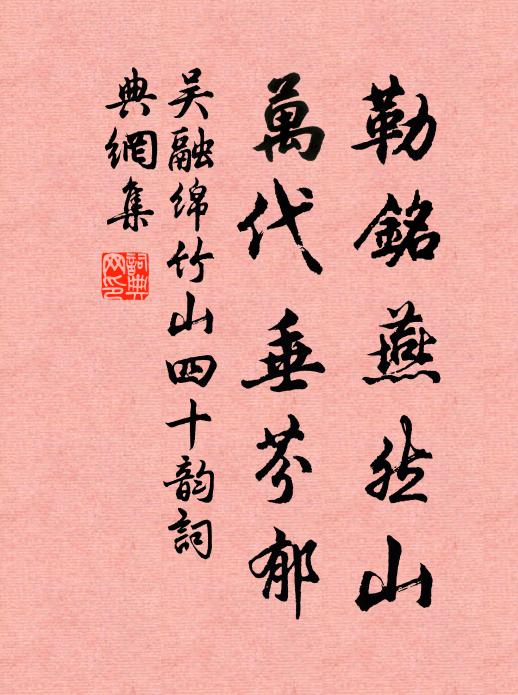 勒銘燕然山
萬代垂芬郁
吴融綿竹山四十韵詞
典網集
詞典网印